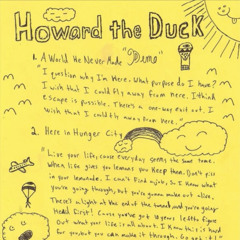 Howard the Duck
1. A World He Never Made "Demo"
"I question why I'm Here. What purpose do I have?
I wish that I could fly away from here. I think
escape is possible. There's a one-way exit out. I
wish that I could fly away from here."
2. Here in Hunger City
"Live your life, cause everyday seems the same
When life gives you lemons you keep them. Don't
in your lemonade. I can't find a job, so I know what
you're going through, but you're gonna make it out alive.
There's a light at the end of the tunnel and you're going
Head first! Cause you've got years left to figure
Out what your life is all about. I know this is hard
for you, but you can make it through. Do